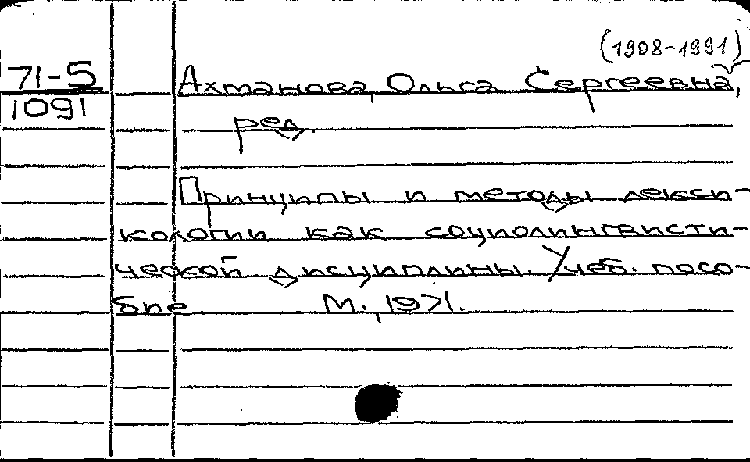 (1908-1991)
71-5
1091
Ахманова, Ольга Сергеевна,
ред.
Принципы и методы лекси-
кологии как социолингвисти-
ческой дисциплины. Учеб. посо-
бие М., 1971.